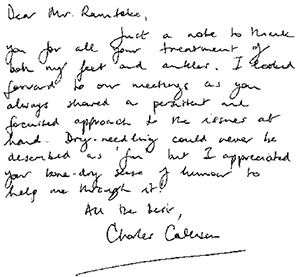 Dear Mr.
Just a note to thank
you for all your treatment of
both my feet and ankles. I looked
forward to our meetings as you
always shared a persistent and
focused approach to the issues at
hand. Dry-needling could never be
described as 'fun' but I appreciated
your bone-dry sense of humour to
help me through it!
All the best,
Charles